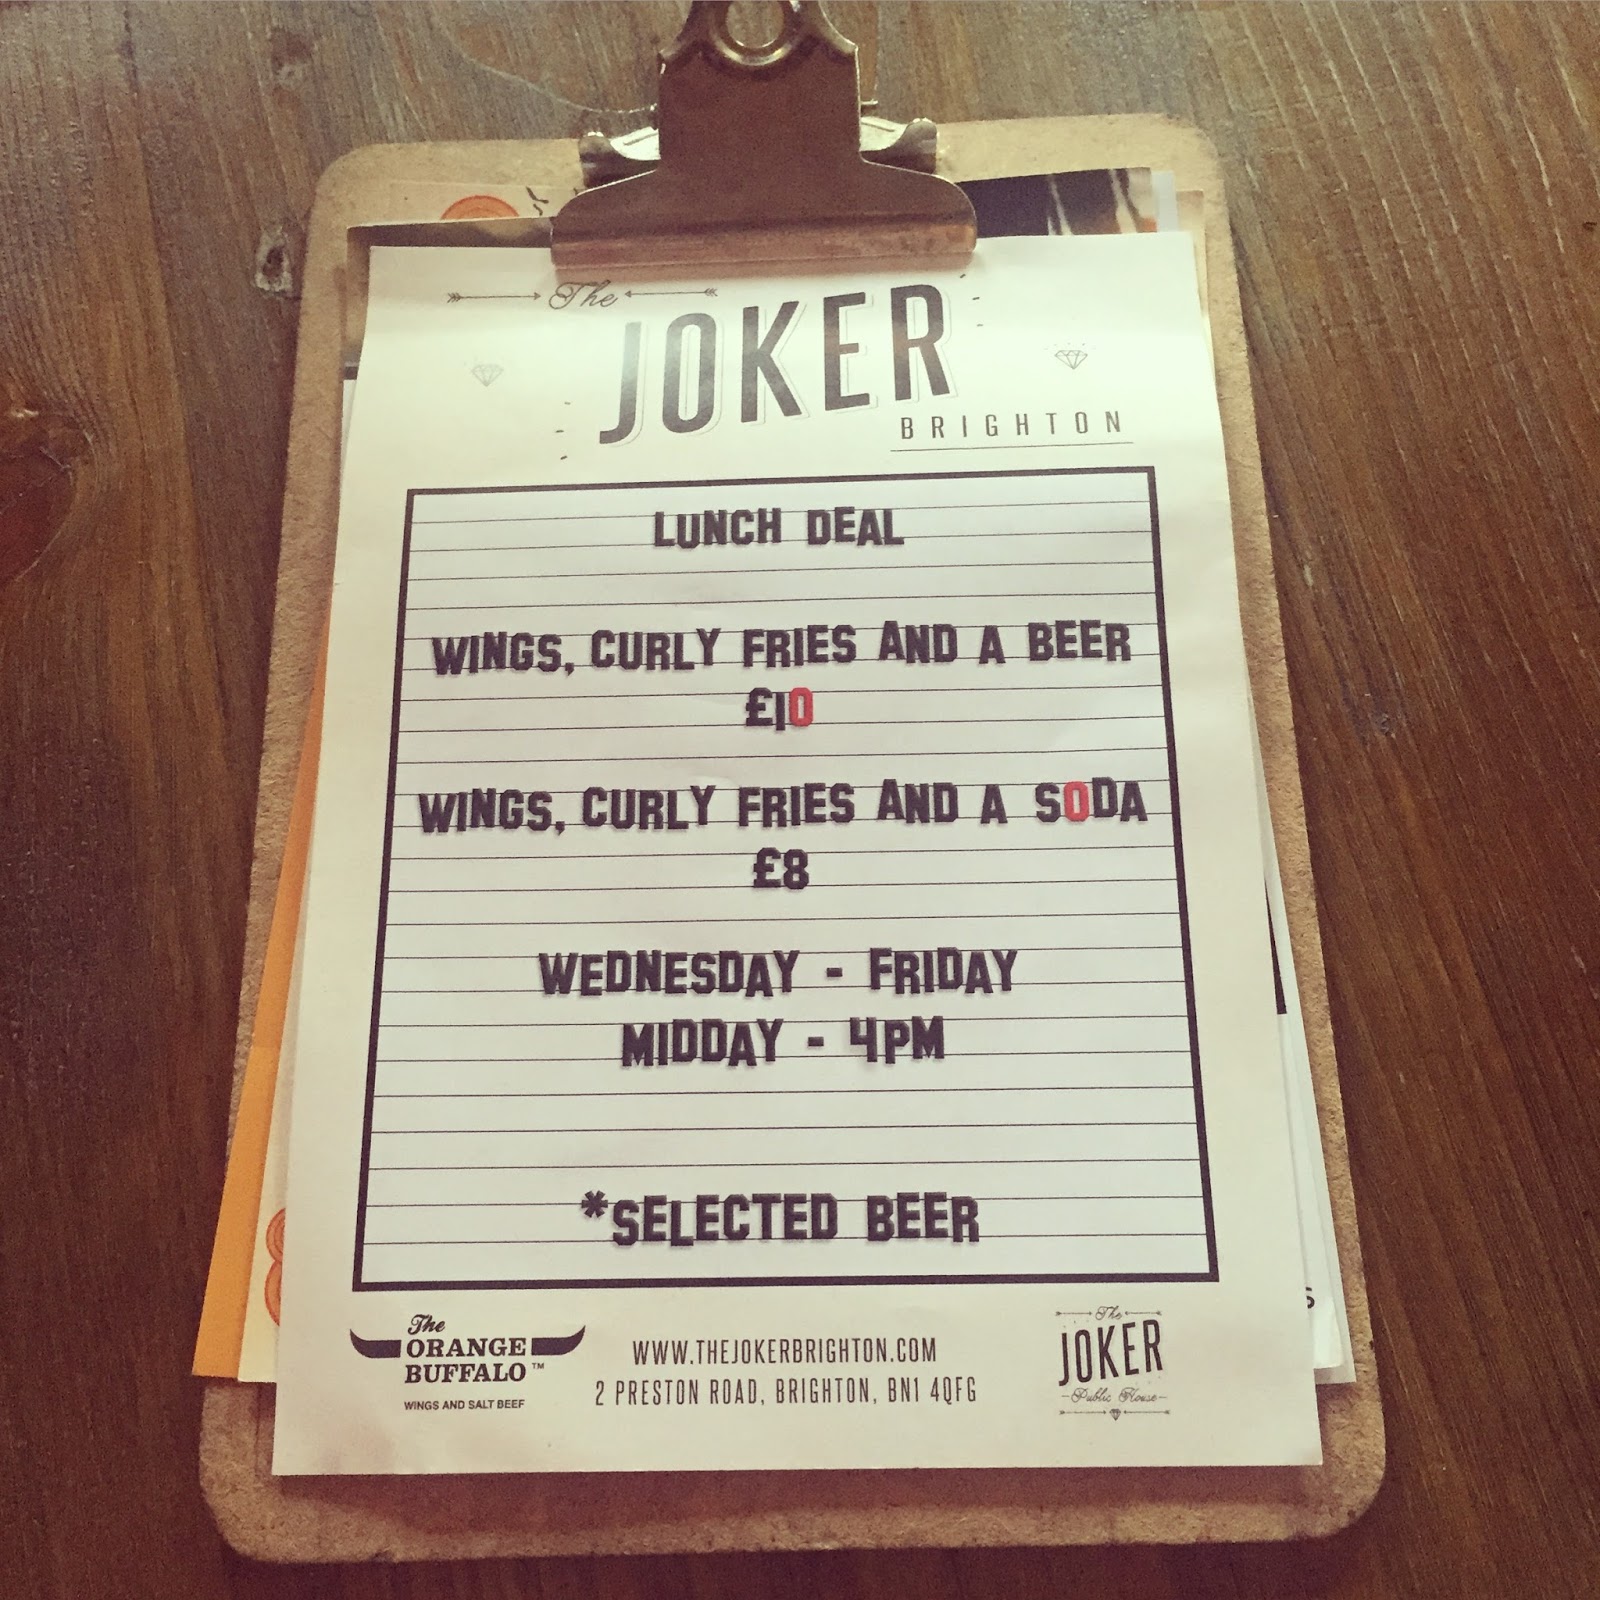 The
JOKER
BRIGHTON
LUNCH DEAL
WINGS, CURLY FRIES AND A BEER
£10
WINGS, CURLY FRIES AND A SODA
£8
WEDNESDAY - FRIDAY
MIDDAY - 4PM
*SELECTED BEER
The
ORANGE
BUFFALO™
WINGS AND SALT BEEF
WWW.THEJOKERBRIGHTON.COM
2 PRESTON ROAD, BRIGHTON, BN1 4QFG
The
JOKER
Public House